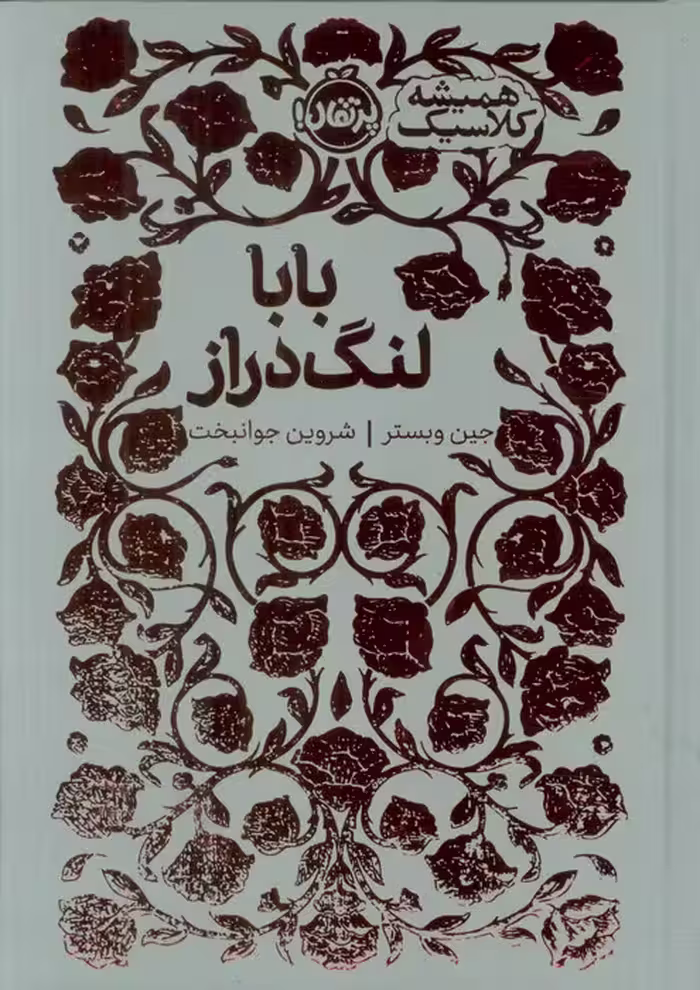 همیشه
کلاسیک
پرتقال!
بابا
لنگ‌دراز
جین وبستر | شروین جوانبخت